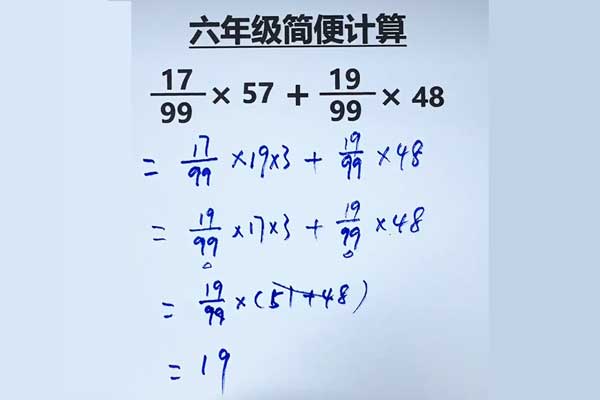 六年级简便计算
17/99 × 57 + 19/99 × 48
= 17/99 ×19×3 + 19/99 ×48
= 19/99 ×17×3 + 19/99 ×48
= 19/99 ×(51+48)
= 19